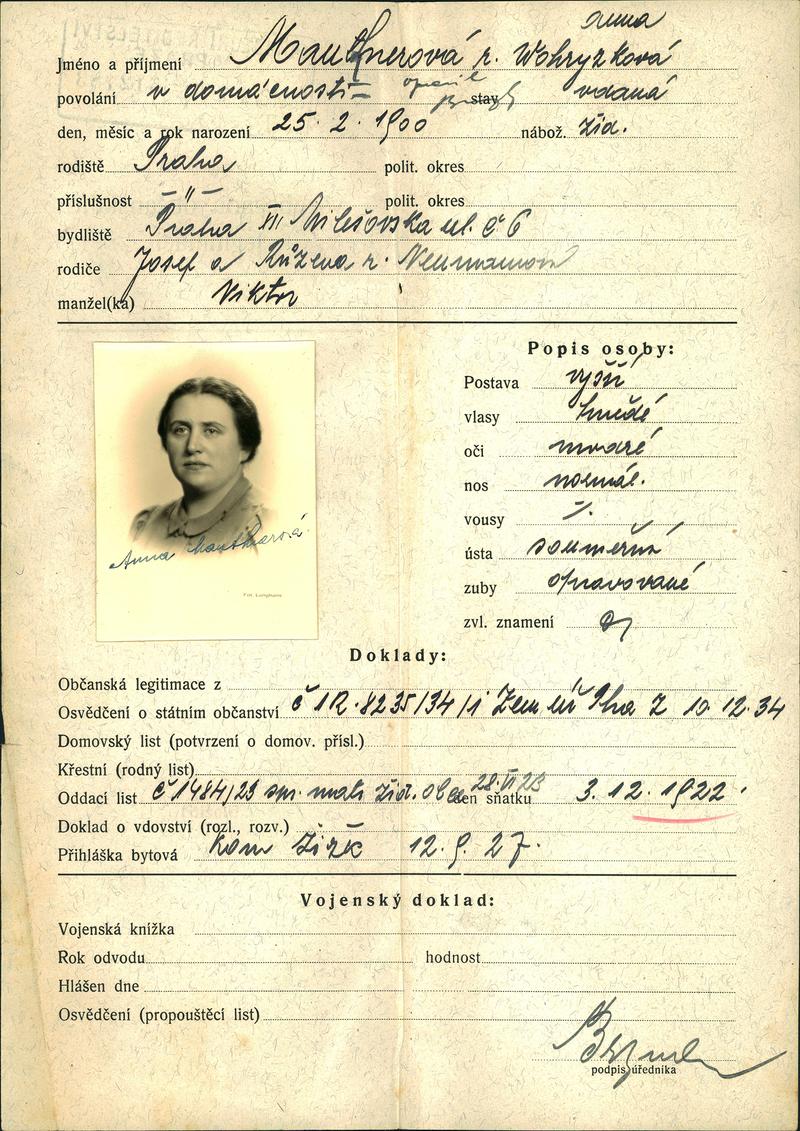 Anna
Jméno a příjmení Mauthnerová r. Wohryzková
povolání v domácnosti stav vdaná
den, měsíc a rok narození 25. 2. 1900 nábož. žid.
rodiště Praha polit. okres
příslušnost – " – polit. okres
bydliště Praha XII Milešovska ul. č 6
rodiče Josef a Růžena r. Neumannová
manžel(ka) Viktor
Popis osoby:
Postava vyšší
vlasy hnědé
oči modré
nos normál.
vousy %.
ústa souměrná
zuby opravované
zvl. znamení
Anna Mauthnerová
Fot. Langhans
Doklady:
Občanská legitimace z
Osvědčení o státním občanství č 1R.8235/34/1 Zem úř Pha Z 10.12.34
Domovský list (potvrzení o domov. přísl.)
Křestní (rodný list)
Oddací list č 1484/23 spr. matr žid. obec 28.VI 23 den sňatku 3. 12. 1922
Doklad o vdovství (rozl., rozv.)
Přihláška bytová kom Žižk 12. 9. 27.
Vojenský doklad:
Vojenská knížka
Rok odvodu hodnost
Hlášen dne
Osvědčení (propouštěcí list)
podpis úředníka